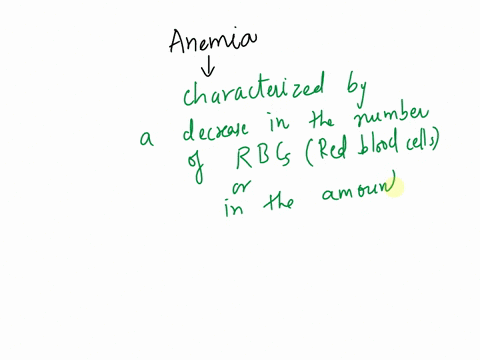 Anemia
↓
characterized by
a decrease in the number
of RBCs (Red blood cells)
or
in the amoun